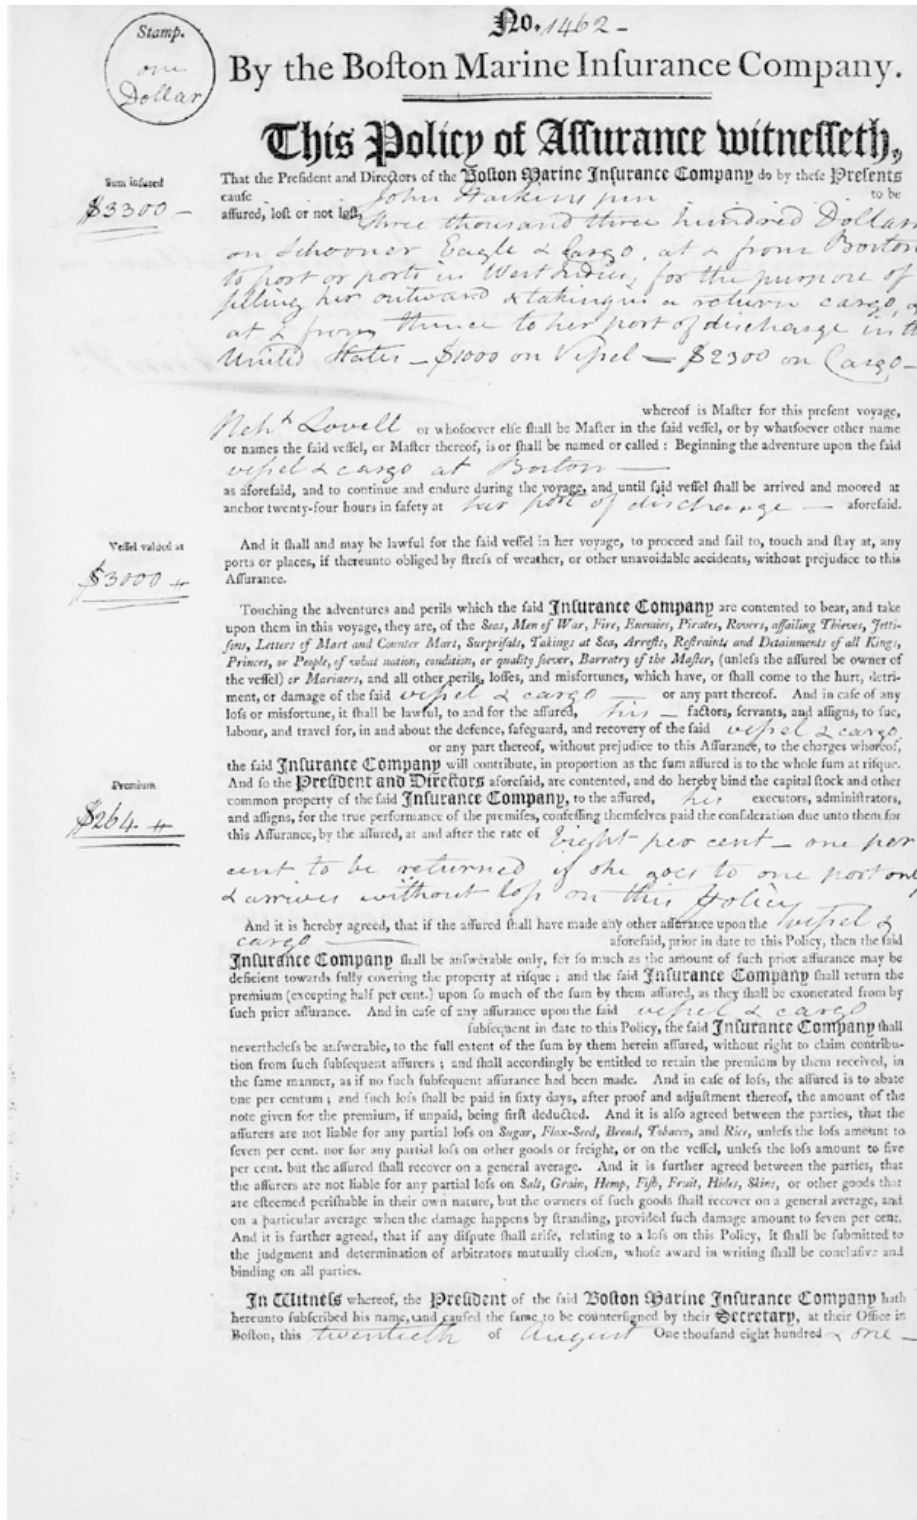 No. 1462 -
Stamp.
one
Dollar
By the Boſton Marine Inſurance Company.
This Policy of Aſſurance witneſſeth,
Sum inſured
$3300 -
That the Preſident and Directors of the Boſton Marine Inſurance Company do by theſe Preſents
cauſe John Haskins junr to be
aſſured, loſt or not loſt, three thousand three hundred Dollars
on Schooner Eagle & Cargo, at & from Boston
to port or ports in West Indies, for the purpose of
selling her outward & taking in a return cargo, &
at & from thence to her port of discharge in th
United States - $1000 on Veſsel - $2300 on Cargo -
whereof is Maſter for this preſent voyage,
Nehh Lovell or whoſoever elſe ſhall be Maſter in the ſaid veſſel, or by whatſoever other name
or names the ſaid veſſel, or Maſter thereof, is or ſhall be named or called : Beginning the adventure upon the ſaid
veſsel & cargo at Boston -
as aforeſaid, and to continue and endure during the voyage, and until ſaid veſſel ſhall be arrived and moored at
anchor twenty-four hours in ſafety at her port of discharge - aforeſaid.
Veſſel valued at
$3000 -
And it ſhall and may be lawful for the ſaid veſſel in her voyage, to proceed and ſail to, touch and ſtay at, any
ports or places, if thereunto obliged by ſtreſs of weather, or other unavoidable accidents, without prejudice to this
Aſſurance.
Touching the adventures and perils which the ſaid Inſurance Company are contented to bear, and take
upon them in this voyage, they are, of the Seas, Men of War, Fire, Enemies, Pirates, Rovers, aſſailing Thieves, Jetti-
ſons, Letters of Mart and Counter Mart, Surpriſals, Takings at Sea, Arreſts, Reſtraints and Detainments of all Kings,
Princes, or People, of what nation, condition, or quality ſoever, Barratry of the Maſter, (unleſs the aſſured be owner of
the veſſel) or Mariners, and all other perils, loſſes, and misfortunes, which have, or ſhall come to the hurt, detri-
ment, or damage of the ſaid veſsel & cargo - or any part thereof. And in caſe of any
loſs or misfortune, it ſhall be lawful, to and for the aſſured, his - factors, ſervants, and aſſigns, to ſue,
labour, and travel for, in and about the defence, ſafeguard, and recovery of the ſaid veſsel & cargo
or any part thereof, without prejudice to this Aſſurance, to the charges whereof,
the ſaid Inſurance Company will contribute, in proportion as the ſum aſſured is to the whole ſum at riſque.
Premium
$264 -
And ſo the Preſident and Directors aforeſaid, are contented, and do hereby bind the capital ſtock and other
common property of the ſaid Inſurance Company, to the aſſured, his executors, adminiſtrators,
and aſſigns, for the true performance of the premiſes, confeſſing themſelves paid the conſideration due unto them for
this Aſſurance, by the aſſured, at and after the rate of Eight per cent - one per
cent to be returned if she goes to one port only
& arrives without loſs on this Policy
And it is hereby agreed, that if the aſſured ſhall have made any other aſſurance upon the veſsel &
cargo - aforeſaid, prior in date to this Policy, then the ſaid
Inſurance Company ſhall be anſwerable only, for ſo much as the amount of ſuch prior aſſurance may be
deficient towards fully covering the property at riſque ; and the ſaid Inſurance Company ſhall return the
premium (excepting half per cent.) upon ſo much of the ſum by them aſſured, as they ſhall be exonerated from by
ſuch prior aſſurance. And in caſe of any aſſurance upon the ſaid veſsel & cargo
ſubſequent in date to this Policy, the ſaid Inſurance Company ſhall
nevertheleſs be anſwerable, to the full extent of the ſum by them herein aſſured, without right to claim contribu-
tion from ſuch ſubſequent aſſurers ; and ſhall accordingly be entitled to retain the premium by them received, in
the ſame manner, as if no ſuch ſubſequent aſſurance had been made. And in caſe of loſs, the aſſured is to abate
one per centum ; and ſuch loſs ſhall be paid in ſixty days, after proof and adjuſtment thereof, the amount of the
note given for the premium, if unpaid, being firſt deducted. And it is alſo agreed between the parties, that the
aſſurers are not liable for any partial loſs on Sugar, Flax-Seed, Bread, Tobacco, and Rice, unleſs the loſs amount to
ſeven per cent. nor for any partial loſs on other goods or freight, or on the veſſel, unleſs the loſs amount to five
per cent. but the aſſured ſhall recover on a general average. And it is further agreed between the parties, that
the aſſurers are not liable for any partial loſs on Salt, Grain, Hemp, Fiſh, Fruit, Hides, Skins, or other goods that
are eſteemed periſhable in their own nature, but the owners of ſuch goods ſhall recover on a general average, and
on a particular average when the damage happens by ſtranding, provided ſuch damage amount to ſeven per cent.
And it is further agreed, that if any diſpute ſhall ariſe, relating to a loſs on this Policy, It ſhall be ſubmitted to
the judgment and determination of arbitrators mutually choſen, whoſe award in writing ſhall be concluſive and
binding on all parties.
In Witneſs whereof, the Preſident of the ſaid Boſton Marine Inſurance Company hath
hereunto ſubſcribed his name, and cauſed the ſame to be counterſigned by their Secretary, at their Office in
Boſton, this twentieth of August One thouſand eight hundred & one -